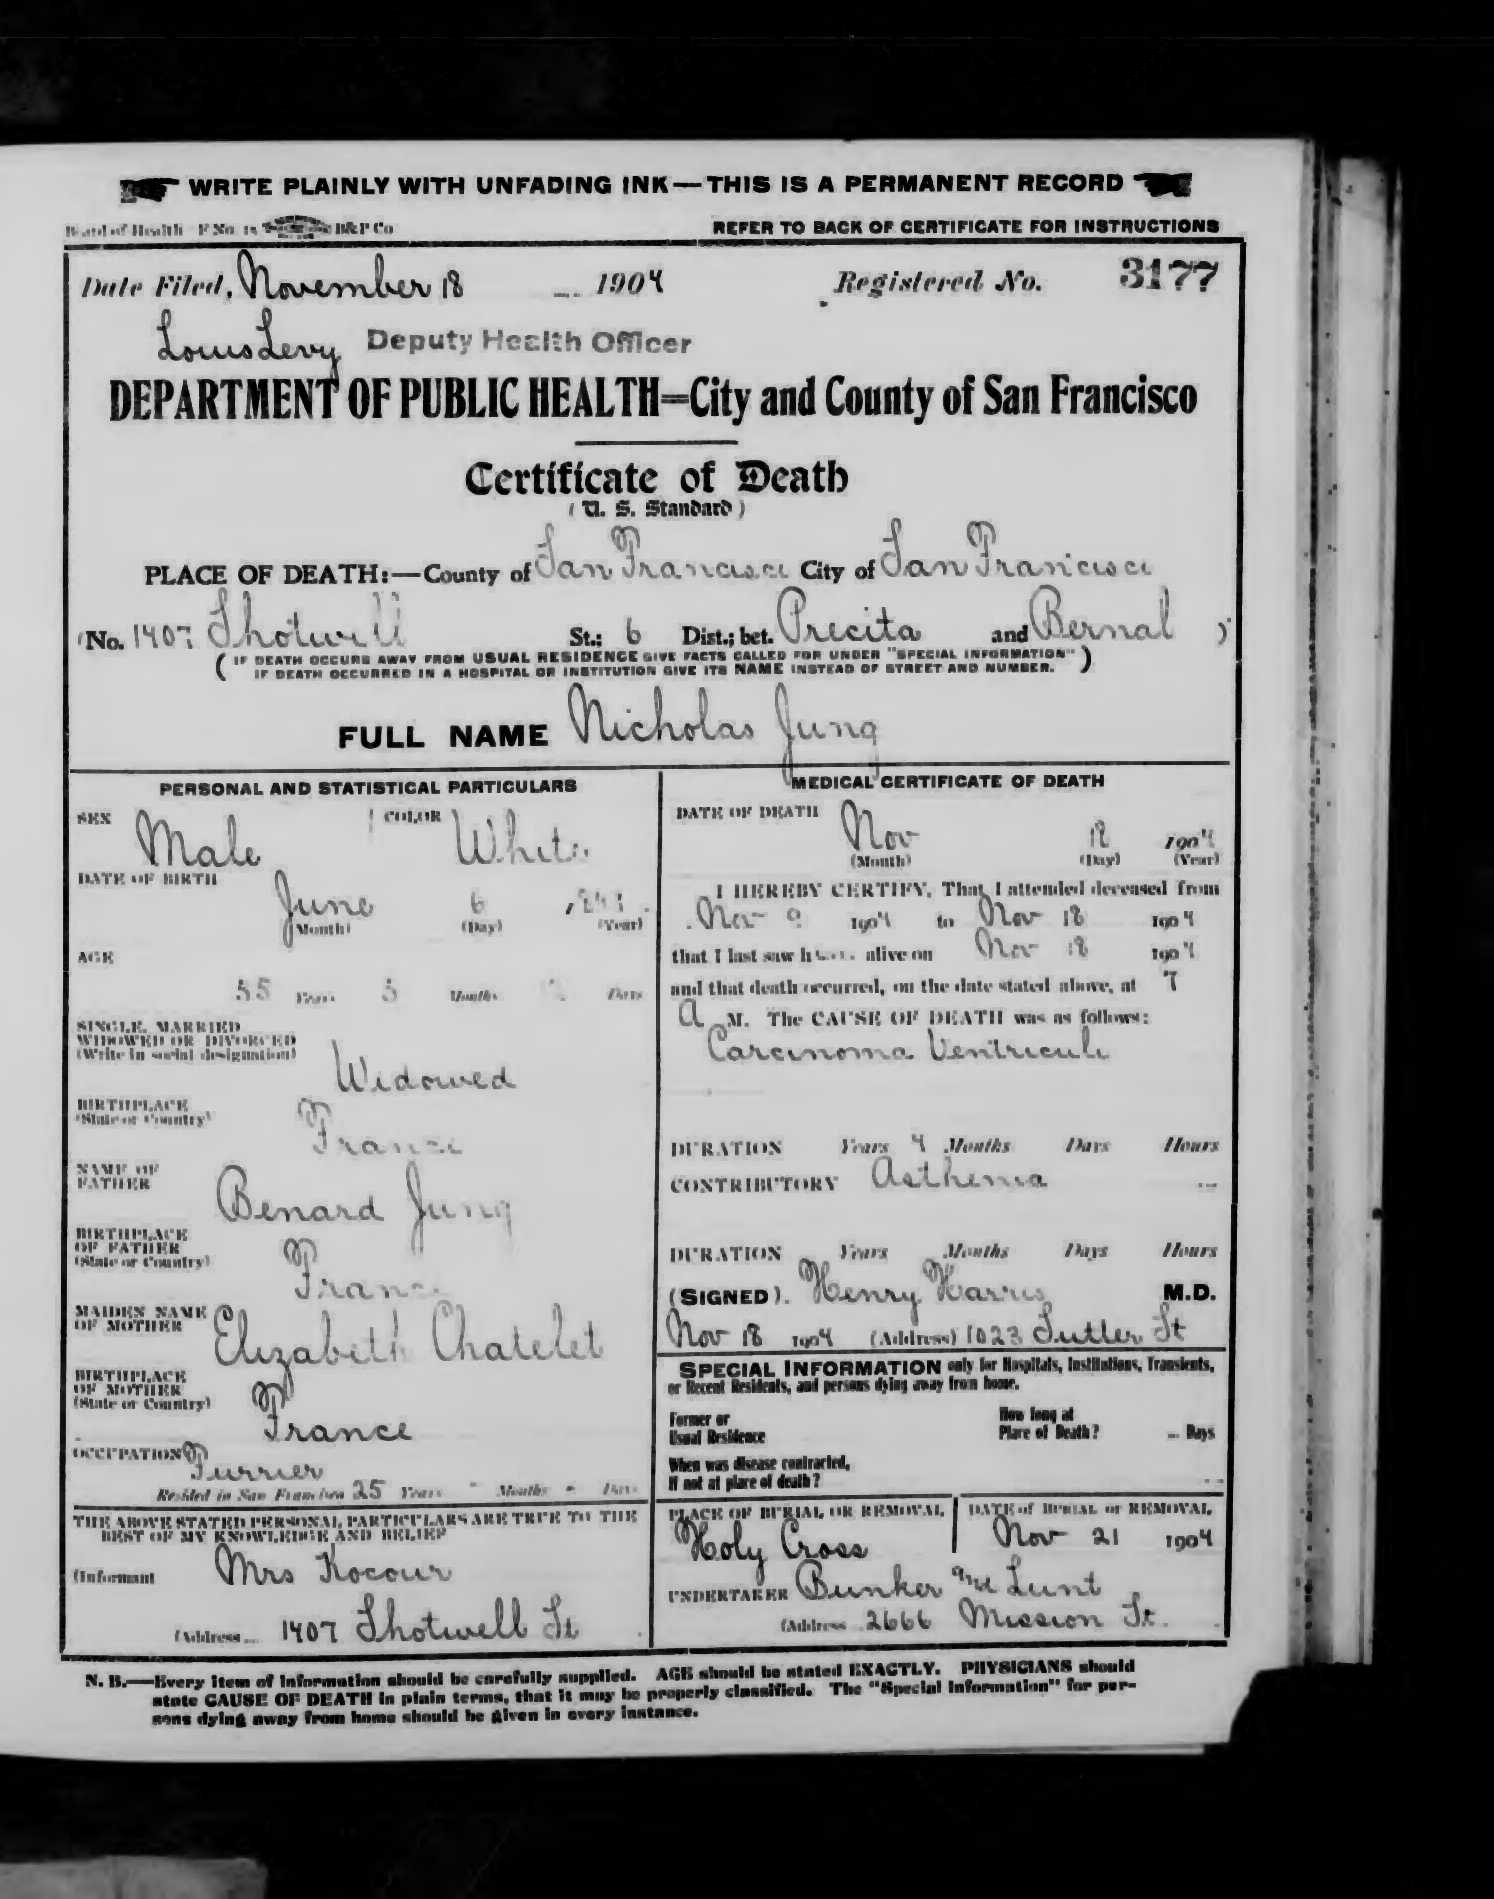 WRITE PLAINLY WITH UNFADING INK—THIS IS A PERMANENT RECORD
Board of Health F No. 18 B&P Co
REFER TO BACK OF CERTIFICATE FOR INSTRUCTIONS
Date Filed, November 18 1904 Registered No. 3177
Louis Levy Deputy Health Officer
DEPARTMENT OF PUBLIC HEALTH=City and County of San Francisco
Certificate of Death
(U. S. Standard)
PLACE OF DEATH:—County of San Francisco City of San Francisco
(No. 1407 Shotwell St.; 6 Dist.; bet. Precita and Bernal )
(IF DEATH OCCURS AWAY FROM USUAL RESIDENCE GIVE FACTS CALLED FOR UNDER "SPECIAL INFORMATION"
IF DEATH OCCURRED IN A HOSPITAL OR INSTITUTION GIVE ITS NAME INSTEAD OF STREET AND NUMBER.)
FULL NAME Nicholas Jung
PERSONAL AND STATISTICAL PARTICULARS
SEX Male COLOR White
DATE OF BIRTH June 6
(Month) (Day) (Year)
AGE
55 Years 5 Months Days
SINGLE, MARRIED
WIDOWED OR DIVORCED
(Write in social designation)
Widowed
BIRTHPLACE
(State or Country)
France
NAME OF
FATHER
Benard Jung
BIRTHPLACE
OF FATHER
(State or Country)
France
MAIDEN NAME
OF MOTHER
Elizabeth Chatelet
BIRTHPLACE
OF MOTHER
(State or Country)
France
OCCUPATION Furrier
Resided in San Francisco 25 Years - Months - Days
THE ABOVE STATED PERSONAL PARTICULARS ARE TRUE TO THE
BEST OF MY KNOWLEDGE AND BELIEF
(Informant Mrs Kocour
(Address 1407 Shotwell St
MEDICAL CERTIFICATE OF DEATH
DATE OF DEATH
Nov 18 1904
(Month) (Day) (Year)
I HEREBY CERTIFY, That I attended deceased from
Nov 9 1904 to Nov 18 1904
that I last saw h alive on Nov 18 1904
and that death occurred, on the date stated above, at 7
A M. The CAUSE OF DEATH was as follows:
Carcinoma Ventriculi
DURATION Years 4 Months Days Hours
CONTRIBUTORY Asthenia
DURATION Years Months Days Hours
(SIGNED). Henry Harris M.D.
Nov 18 1904 (Address) 1023 Sutter St
SPECIAL INFORMATION only for Hospitals, Institutions, Transients,
or Recent Residents, and persons dying away from home.
Former or
Usual Residence
How long at
Place of Death? Days
When was disease contracted,
If not at place of death?
PLACE OF BURIAL OR REMOVAL
Holy Cross
DATE of BURIAL or REMOVAL
Nov 21 1904
UNDERTAKER Bunker and Lunt
(Address 2666 Mission St.
N. B.—Every item of information should be carefully supplied. AGE should be stated EXACTLY. PHYSICIANS should
state CAUSE OF DEATH in plain terms, that it may be properly classified. The "Special Information" for per-
sons dying away from home should be given in every instance.